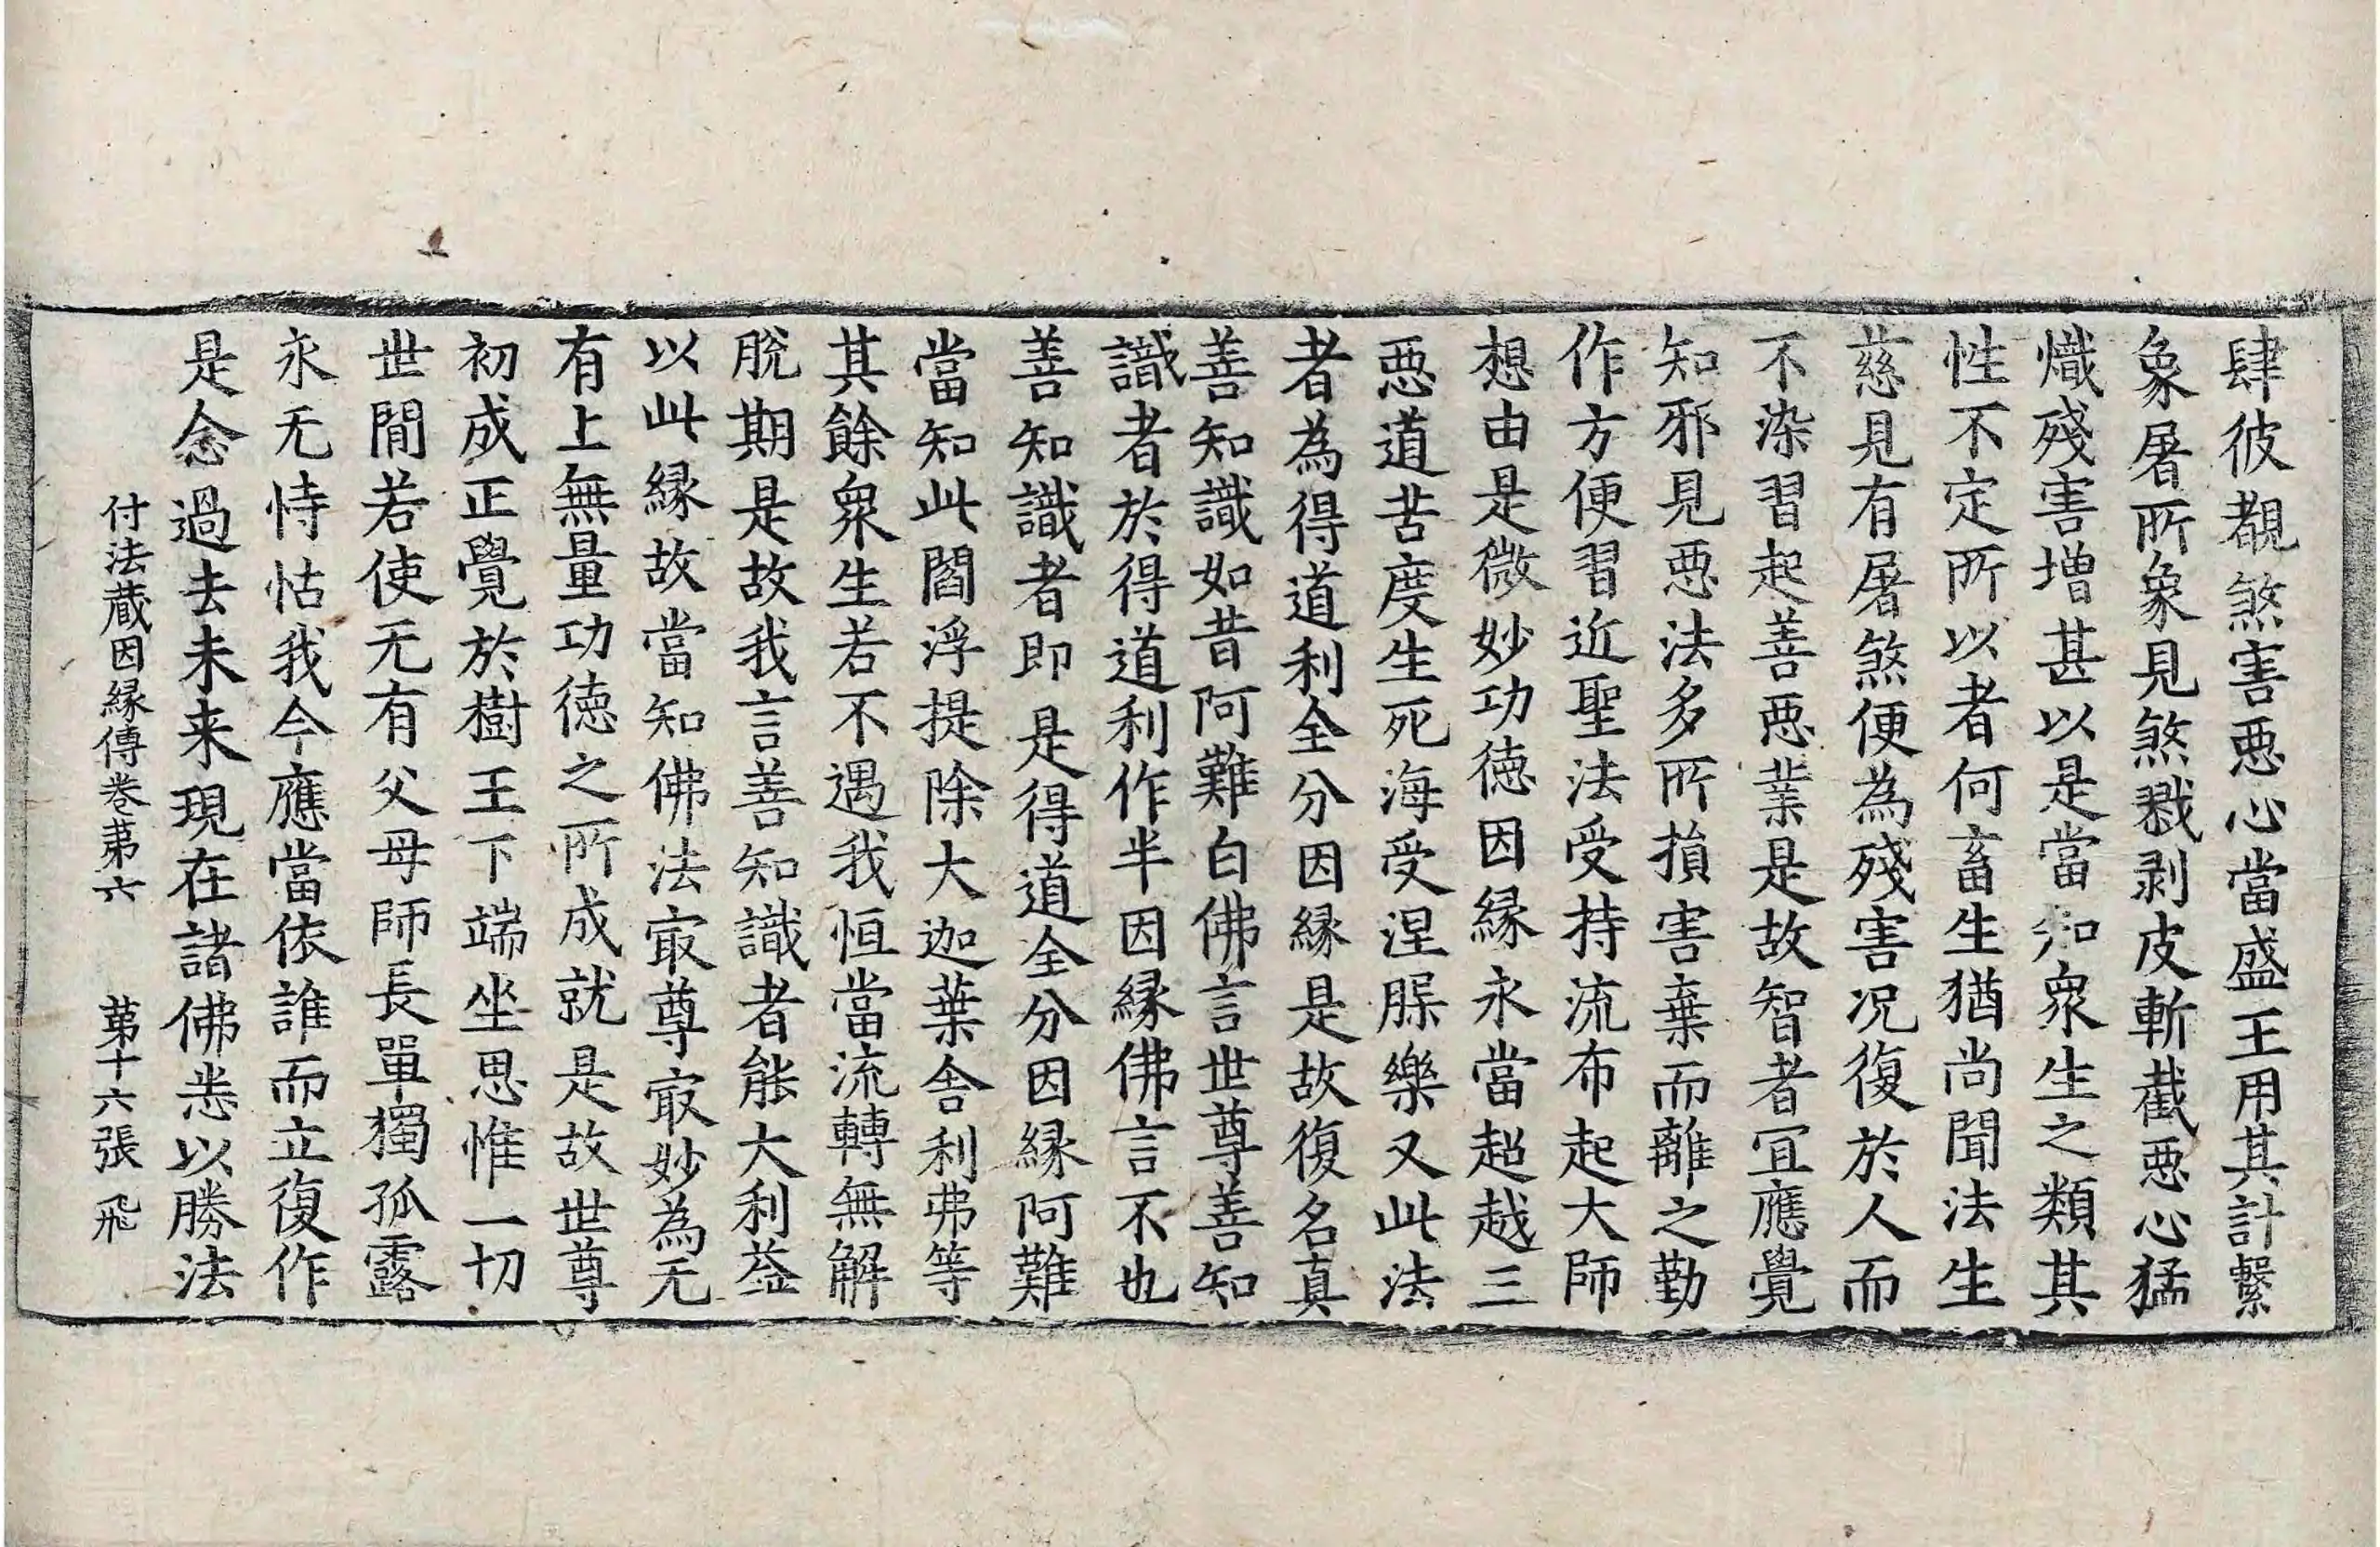 肆彼覩煞害惡心當盛王用其計繫
象屠所象見煞戮剥皮斬截惡心猛
熾殘害増甚以是當知衆生之類其
性不定所以者何畜生猶尚聞法生
慈見有屠煞便為殘害况復於人而
不染習起善惡業是故智者宜應覺
知邪見惡法多所損害棄而離之勤
作方便習近聖法受持流布起大師
想由是微妙功徳因縁永當超越三
惡道苦度生死海受涅槃樂又此法
者為得道利全分因縁是故復名真
善知識如昔阿難白佛言世尊善知
識者於得道利作半因縁佛言不也
善知識者即是得道全分因縁阿難
當知此閻浮提除大迦葉舍利弗等
其餘衆生若不遇我恒當流轉無解
脫期是故我言善知識者能大利益
以此縁故當知佛法㝡尊㝡妙為无
有上無量功徳之所成就是故世尊
初成正覺於樹王下端坐思惟一切
世間若使无有父母師長單獨孤露
永无恃怙我今應當依誰而立復作
是念過去未来現在諸佛悉以勝法
付法蔵因縁傳卷第六 第十六張 飛